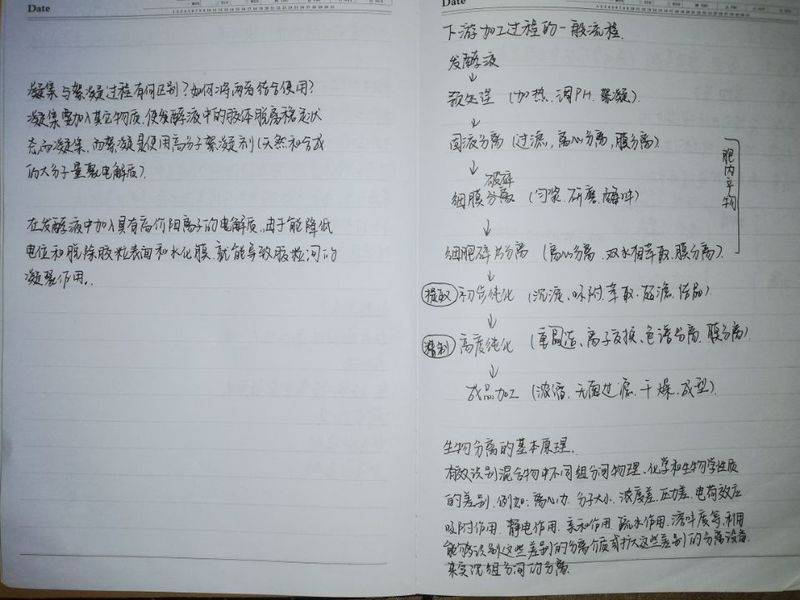 Date
凝集与絮凝过程有何区别？如何将两者结合使用？
凝集是加入某些物质，使发酵液中的胶体脱离稳定状
态而凝集，而絮凝是使用高分子絮凝剂（天然和合成
的大分子量聚电解质）。
在发酵液中加入具有高价阳离子的电解质，由于能降低
电位和脱除胶粒表面和水化膜，就能导致胶粒间的
凝聚作用。
Date
下游加工过程的一般流程
发酵液
↓
预处理（加热、调PH、絮凝）
↓
固液分离（过滤，离心分离，膜分离）
↓ 破碎
细膜分离（匀浆、研磨、酶冲）
↓
细胞碎片分离（离心分离、双水相萃取、膜分离）
胞内产物
提取 初步纯化（沉淀、吸附、萃取、超滤、结晶）
↓
精制 高度纯化（重圆造、离子交换、色谱分离、膜分离）
↓
成品加工（浓缩、无菌过滤、干燥、成型）
生物分离的基本原理
有效识别混合物中不同组分间物理、化学和生物学性质
的差别，例如：离心力、分子大小、浓度差、压力差、电荷效应
吸附作用、静电作用、亲和作用、疏水作用、溶解度等，利用
能够识别这些差别的分离介质或扩大这些差别的分离设备
来实现组分间的分离